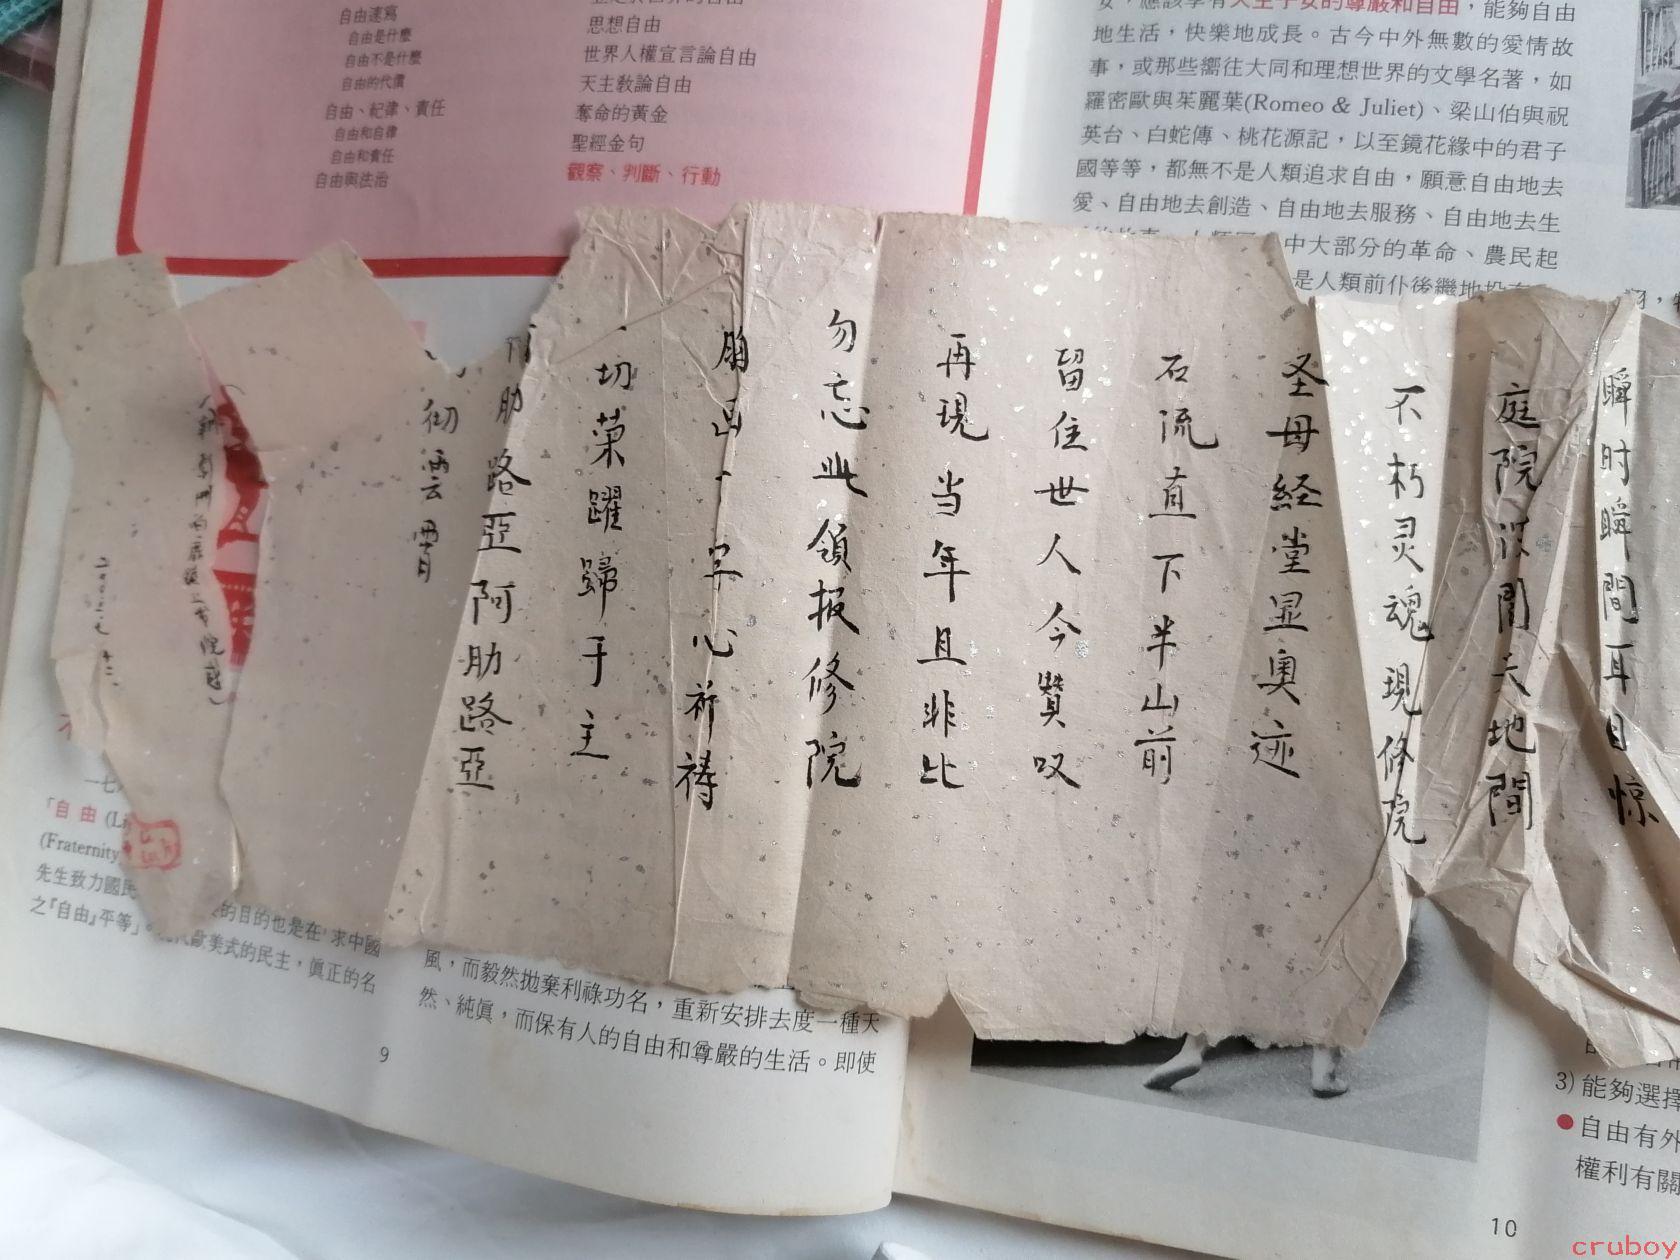 自由速寫
自由是什麼
自由不是什麼
自由的代價
自由、紀律、責任
自由和自律
自由和責任
自由與法治
思想自由
世界人權宣言論自由
天主教論自由
奪命的黃金
聖經金句
觀察、判斷、行動
女，應該享有天主子女的尊嚴和自由，能夠自由
地生活，快樂地成長。古今中外無數的愛情故
事，或那些嚮往大同和理想世界的文學名著，如
羅密歐與茱麗葉(Romeo & Juliet)、梁山伯與祝
英台、白蛇傳、桃花源記，以至鏡花緣中的君子
國等等，都無不是人類追求自由，願意自由地去
愛、自由地去創造、自由地去服務、自由地去生
中大部分的革命、農民起
是人類前仆後繼地
瞬时瞬間耳目惊
庭院 間天地間
不朽灵魂現修院
圣母经堂显奥迹
石流直下半山前
留住世人今贊叹
再現当年且非比
勿忘此領报修院
胸 十字心祈祷
一切荣躍歸于主
阿肋路亞阿肋路亞
彻雲霄
一七
「自由(Li
(Fraternity
先生致力國民
的目的也是在 求中國
之『自由』平等」。 代歐美式的民主，眞正的名
風，而毅然拋棄利祿功名，重新安排去度一種天
然、純眞，而保有人的自由和尊嚴的生活。即使
9
3) 能夠選擇
●自由有外
權利有關
10
cruboy